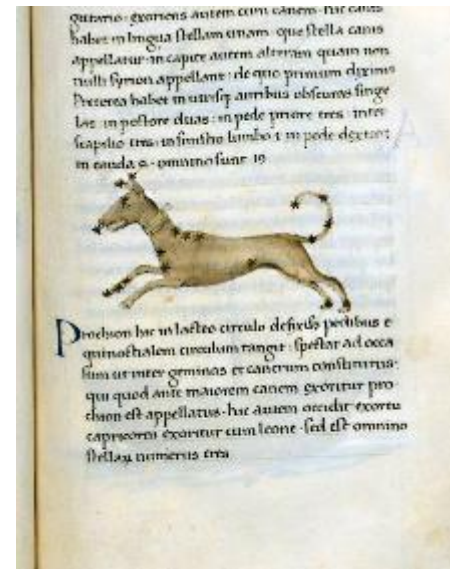 gittario · exoriens autem cum canem · hic canis
habet in lingua stellam unam · que stella canis
appellatur · in capite autem alteram quam non
nulli syrion appellant · de quo primum diximus
Preterea habet in utrisq auribus obscuras singu
las · in pectore duas · in pede priore tres · inter
scapilio tres · in sinistro lumbo 1 in pede dextro 1
in cauda omnino sunt 19
Prochion hic in lacteo circulo defixis pedibus e
quinoctialem circulum tangit · spectat ad occa
sum ut inter geminos et cancrum constitutus ·
qui quod ante maiorem canem exoritur pro
chion est appellatus · hic autem occidit exortu
capricorni exoritur cum leone · sed est omnino
stellaꝝ numerus tres